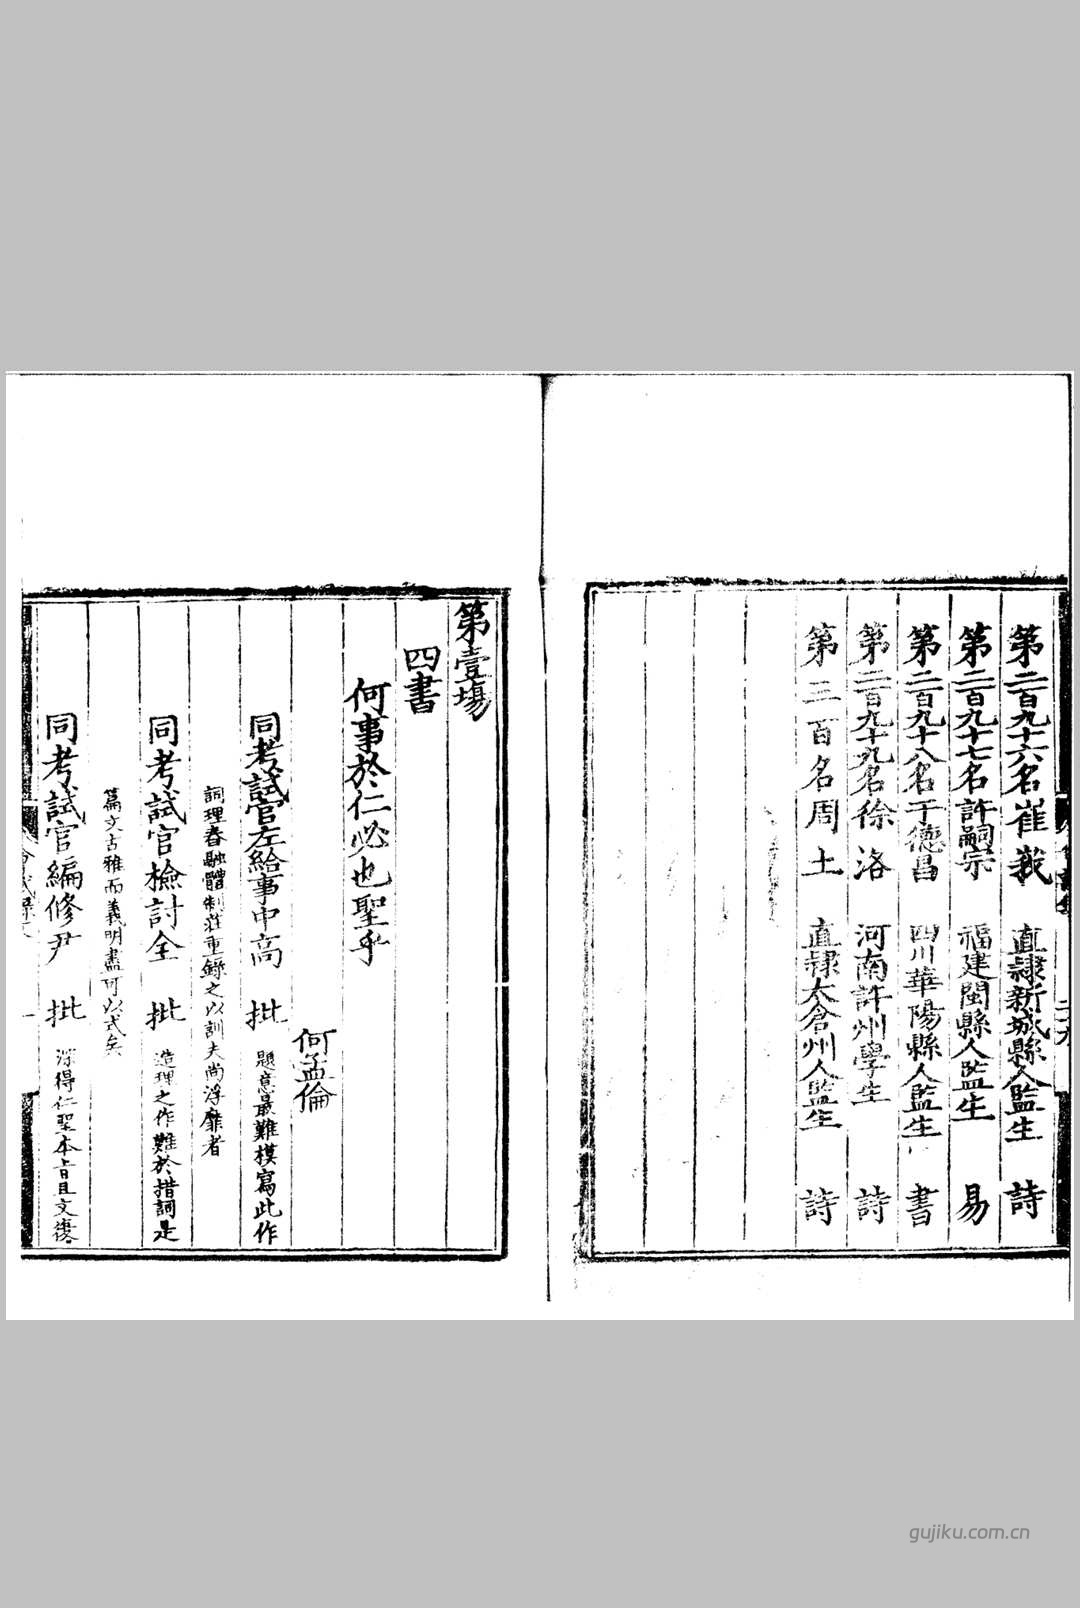 第二百九十六名崔　莪　直隸新城縣人監生　詩
第二百九十七名許嗣宗　福建閩縣人監生　易
第二百九十八名于德昌　四川華陽縣人監生　書
第二百九十九名徐　洛　河南許州學生　詩
第三百名周　土　直隸太倉州人監生　詩
第壹場
四書
何事於仁必也聖乎
何孟倫
同考試官左給事中高　批　題意最難模寫此作
詞理春融體制莊重錄之以訓夫尚浮靡者
同考試官檢討全　批　造理之作難於措詞是
篇文古雅而義明盡可以式矣
同考試官編修尹　批　深得仁聖本旨且文復
gujiku.com.cn